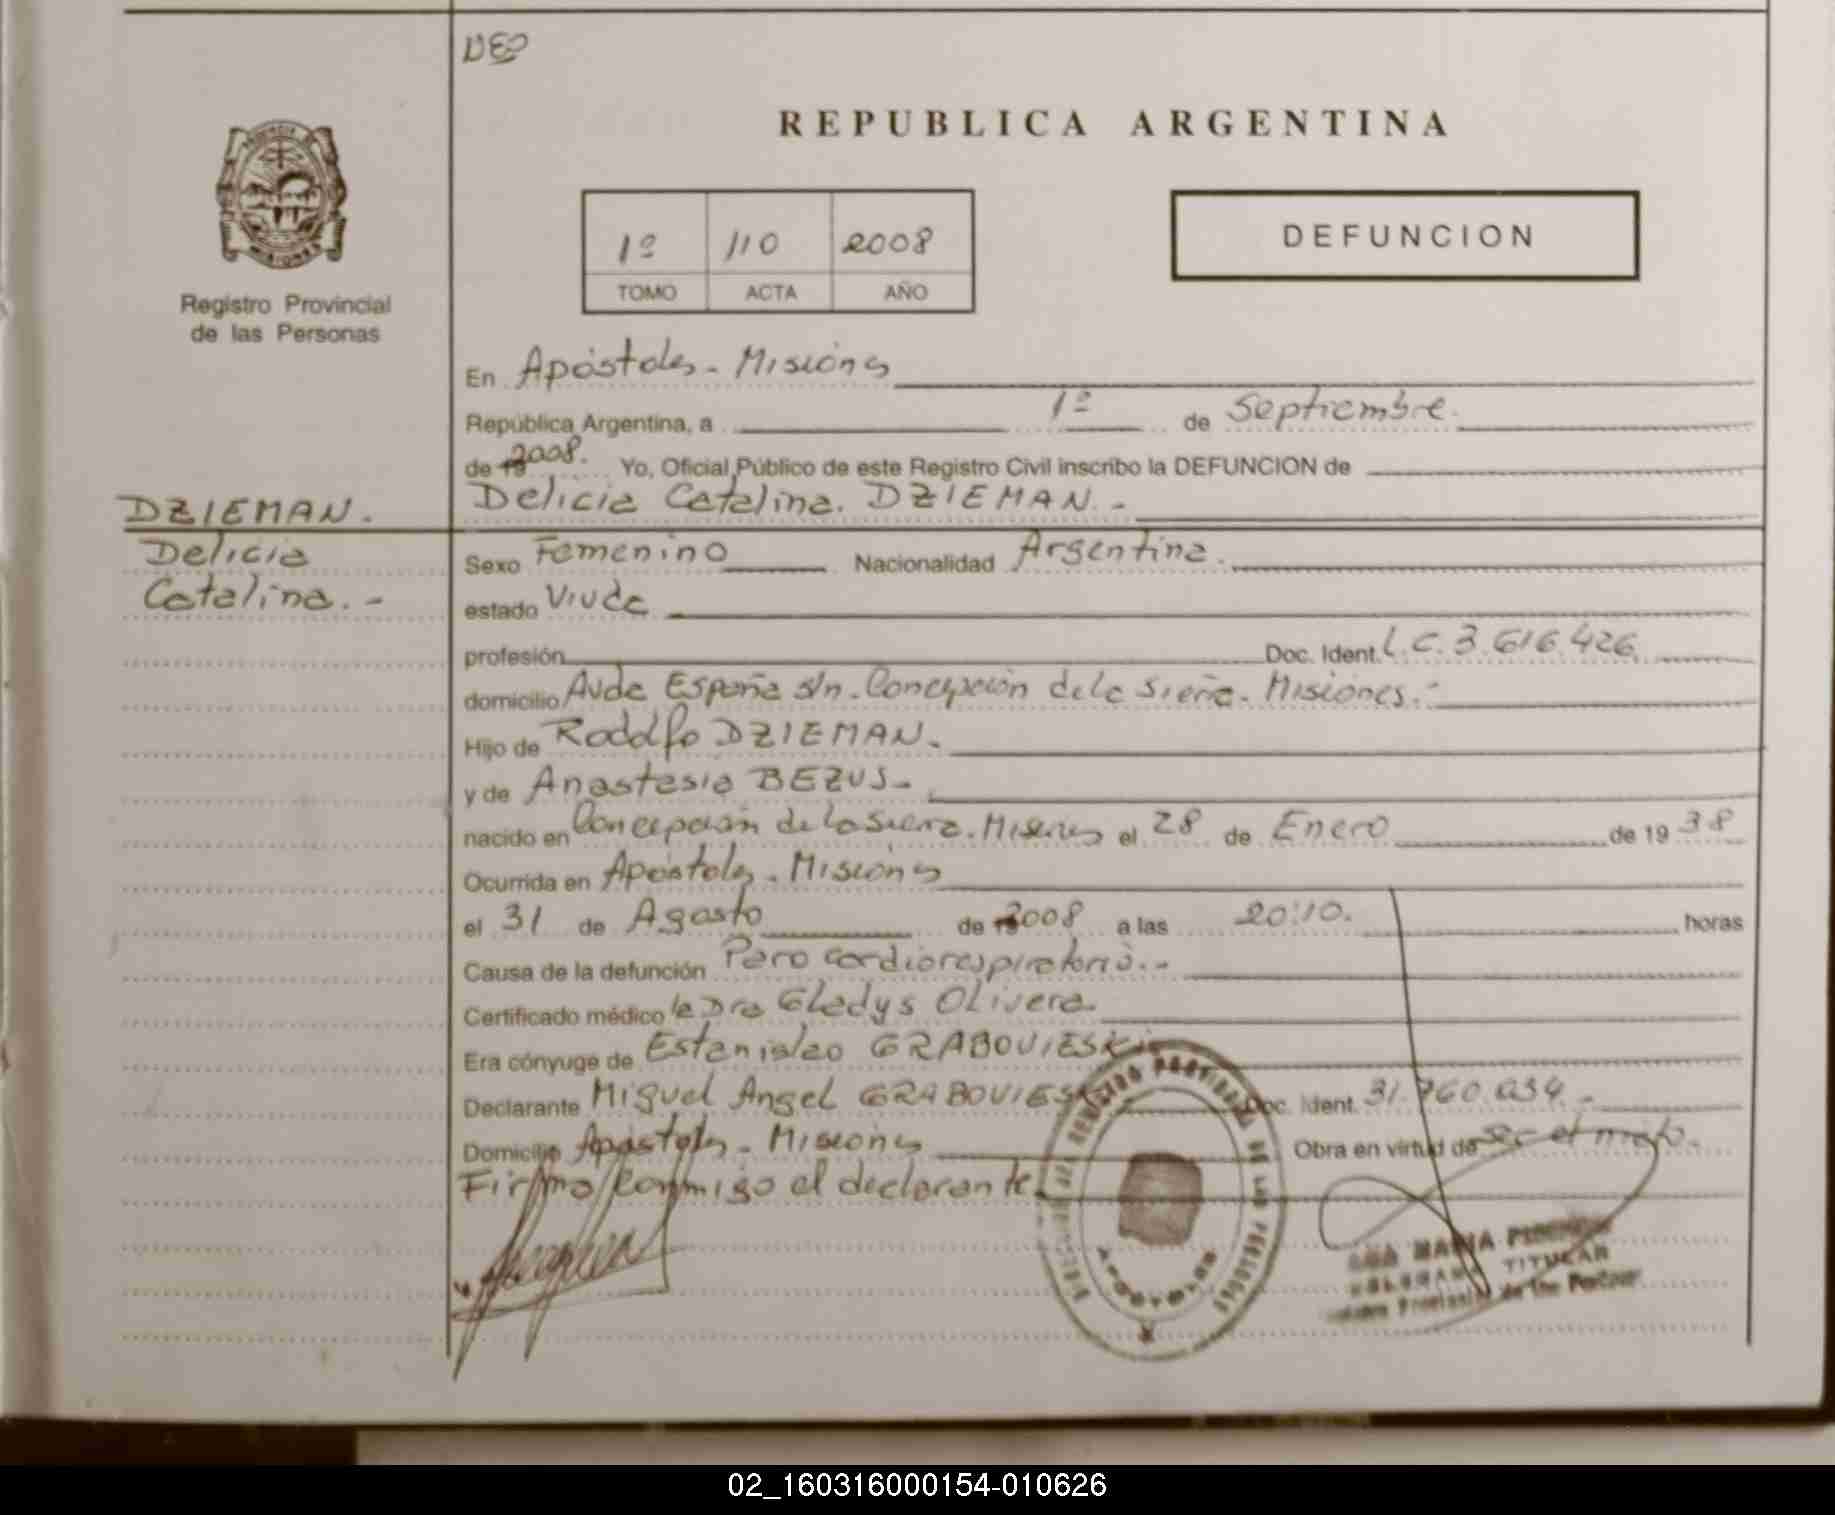 DEP
REPUBLICA ARGENTINA
1º 110 2008
TOMO ACTA AÑO
DEFUNCION
PROVINCIA
MISIONES
Registro Provincial
de las Personas
En Apóstoles - Misiones
República Argentina, a 1º de Septiembre.
de 2008. Yo, Oficial Público de este Registro Civil inscribo la DEFUNCION de
DZIEMAN.
Delicia Catalina. DZIEMAN. -
Delicia
Catalina. -
Sexo Femenino Nacionalidad Argentina.
estado Viuda
profesión Doc. Ident. L.C. 3.616.426
domicilio Avda España s/n. Concepción de la Sierra. Misiones. -
Hijo de Rodolfo DZIEMAN.
y de Anastasia BEZUS -
nacido en Concepción de la Sierra. Misiones el 28 de Enero de 1938
Ocurrida en Apóstoles - Misiones
el 31 de Agosto de 2008 a las 20:10. horas
Causa de la defunción Paro cardiorespiratorio. -
Certificado médico la Dra Gladys Olivera.
Era cónyuge de Estanislao GRABOVIESKI
Declarante Miguel Angel GRABOVIESKI Doc. Ident. 31.760.034 -
Domicilio Apóstoles - Misiones Obra en virtud de ser el nieto.
Firma conmigo el declarante.
REGISTRO PROVINCIAL DE LAS PERSONAS
APOSTOLES
MARIA
TITULAR
02_160316000154-010626